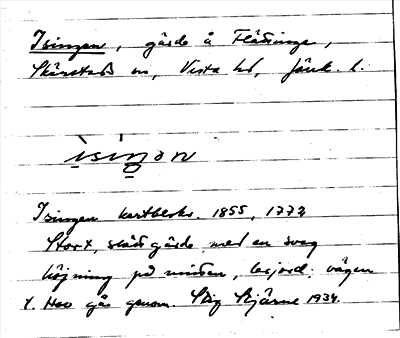 Isingen, gärde å Flättinge,
Skärstads sn, Vista hd, Jönk. l.
ìsìŋon
Isingen kartbeskr. 1855, 1772
Stort, slätt gärde med en svag
höjning på mitten, lerjord; vägen
t. Hov går genom. Stig Stjärne 1934.